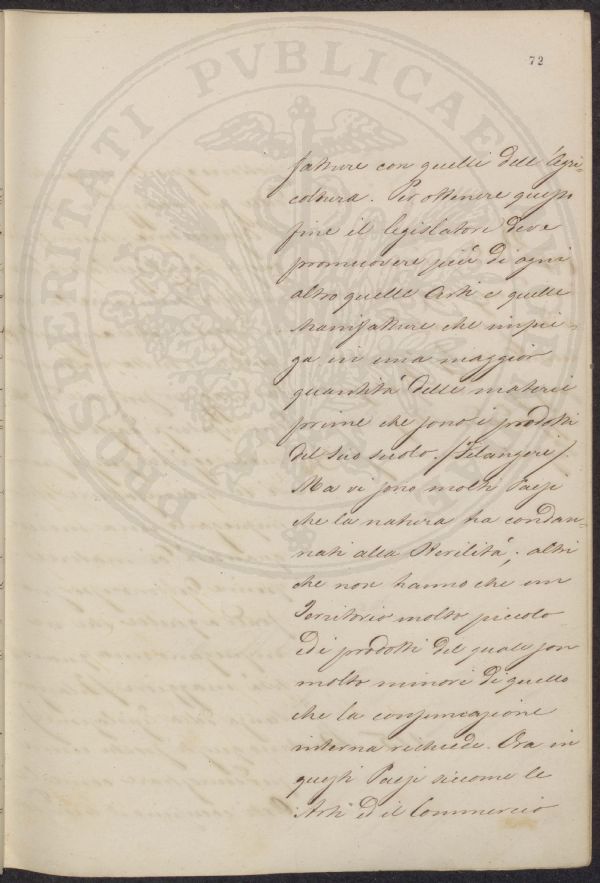 72
fatture con quelli dell'Agri-
coltura. Per ottenere questo
fine il legislatore deve
promuovere più di ogni
altro quelle Arti e quelle
Manifatture che impie-
ga in una maggior
quantità delle materie
prime che sono i prodotti
del suo suolo. (Filangeri).
Ma vi sono molti Paesi
che la natura ha condan-
nati alla sterilità; altri
che non hanno che un
Territorio molto piccolo
ed i prodotti del quale son
molto minori di quello
che la consumazione
interna richiede. Ora in
questi Paesi siccome le
Arti ed il Commercio
PROSPERITATI PVBLICAE